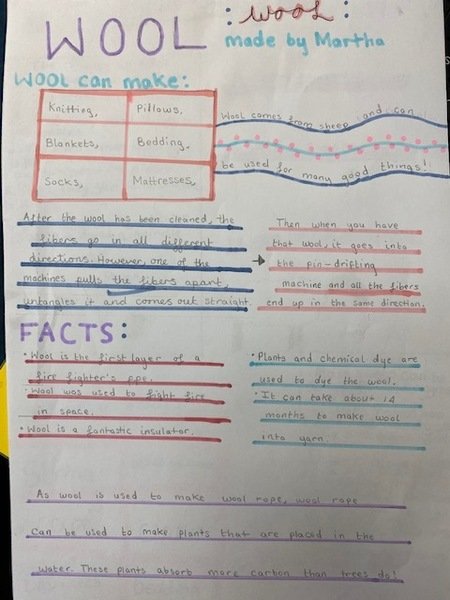 WOOL
: wool :
made by Martha
Wool can make:
Knitting, Pillows,
Blankets, Bedding,
Socks, Mattresses,
Wool comes from sheep and can
be used for many good things!
After the wool has been cleaned, the
fibers go in all different
directions. However, one of the
machines pulls the fibers apart,
untangles it and comes out straight.
Then when you have
that wool, it goes into
the pin-drifting
machine and all the fibers
end up in the same direction.
FACTS:
• Wool is the first layer of a
fire fighter's ppe.
• Wool was used to fight fire
in space.
• Wool is a fantastic insulator.
• Plants and chemical dye are
used to dye the wool.
• It can take about 14
months to make wool
into yarn.
As wool is used to make wool rope, wool rope
can be used to make plants that are placed in the
water. These plants absorb more carbon than trees do!